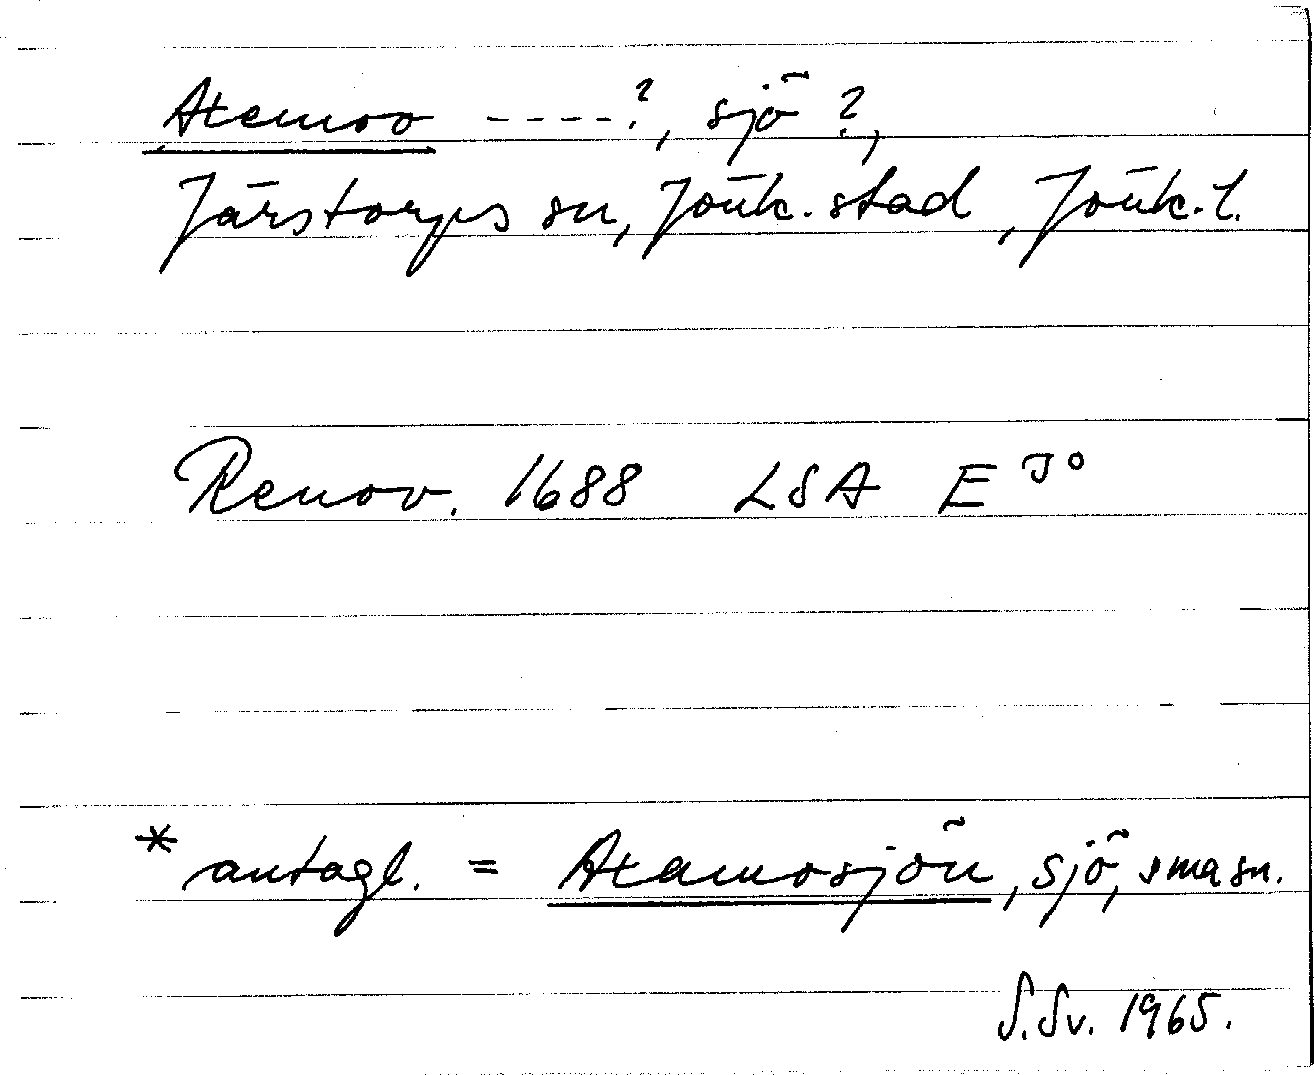 Axemoo ----?, sjö ?,
Järstorps sn, Jönk. stad, Jönk. l.
Renov. 1688 LSA E Jo
* antagl. = Axamosjön, sjö, sma sn.
S. Sv. 1965.